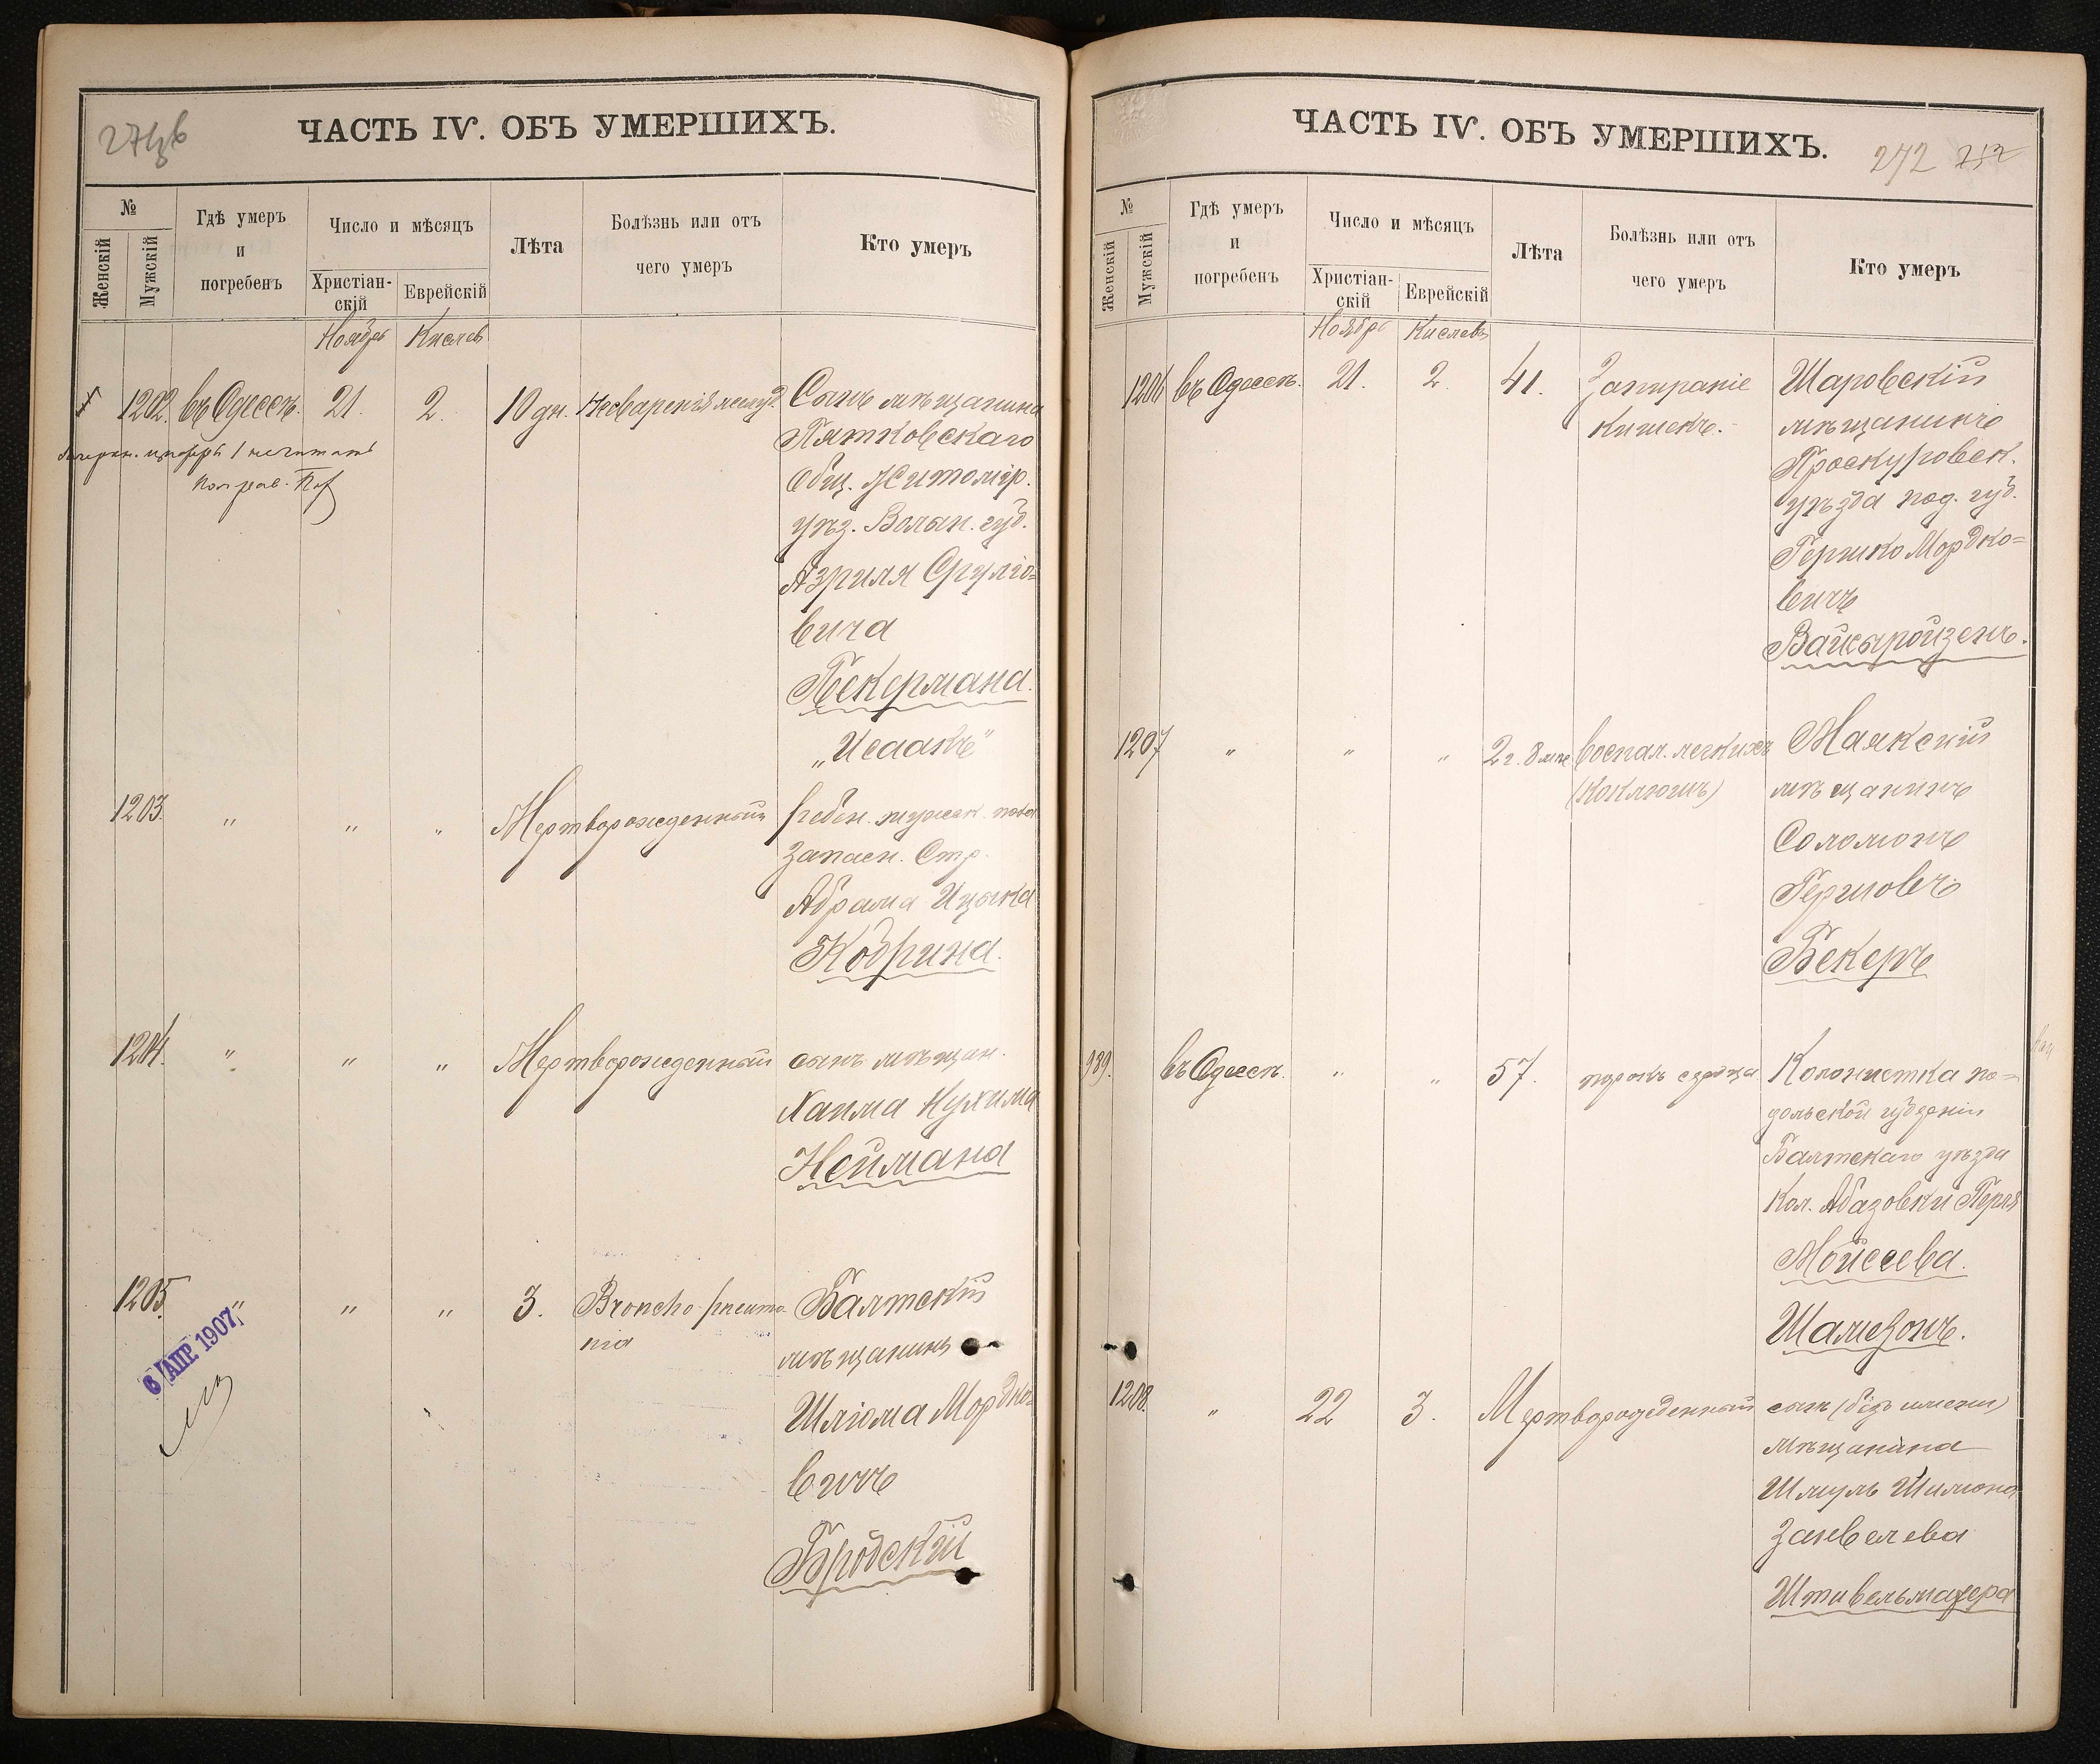 ЧАСТЬ IV. ОБЪ УМЕРШИХЪ.
№
Женскій
Мужскій
Гдѣ умеръ
и
погребенъ
Число и мѣсяцъ
Христіан-
скій
Еврейскій
Лѣта
Болѣзнь или отъ
чего умеръ
Кто умеръ
Ноябрь Кислев
1202. въ Одессѣ. 21. 2. 10 дн. Несваренія желуд. Сынъ мѣщанина
Пятковскаго
Общ. Житомір.
уѣз. Волын. губ.
Азриля Сруліо-
вича
Бекермана.
„Исаакъ"
1203. " " " Мертворожденный ребен. мужск. пола
Запасн. Стр.
Абрама Ицька
Кобрина.
1204. " " " Мертворожденный сынъ мѣщан.
Хаима Нухима
Неймана
1205. " " " 3. Broncho-pneumo- Балтскій
nia мѣщанинъ
6 АПР. 1907
Шліома Мордко-
вичъ
Бродскій
ЧАСТЬ IV. ОБЪ УМЕРШИХЪ.
272 252
№
Женскій
Мужскій
Гдѣ умеръ
и
погребенъ
Число и мѣсяцъ
Христіан-
скій
Еврейскій
Лѣта
Болѣзнь или отъ
чего умеръ
Кто умеръ
Ноябрь Кислевъ
1206 въ Одессѣ. 21. 2. 41. Запираніе Шаровскій
кишекъ. мѣщанинъ
Проскуровск.
уѣзда под. губ.
Гершко Мордко-
вичъ
Вайсыройзенъ.
1207 " " " 2 г. 8 мѣс воспал. легкихъ Маякскій
(Коклюшъ) мѣщанинъ
Соломонъ
Гершовъ
Бекеръ
989. въ Одессѣ. " " 57. порокъ сердца Колонистка по-
дольской губерніи
Балтскаго уѣзда
Кол. Абазовки Перля
Мойсеева.
Шамсонъ.
1208. " 22 3. Мертворожденный сынъ (безъ имени)
мѣщанина
Шмуль Шимона
Заивелева
Штивельмахера